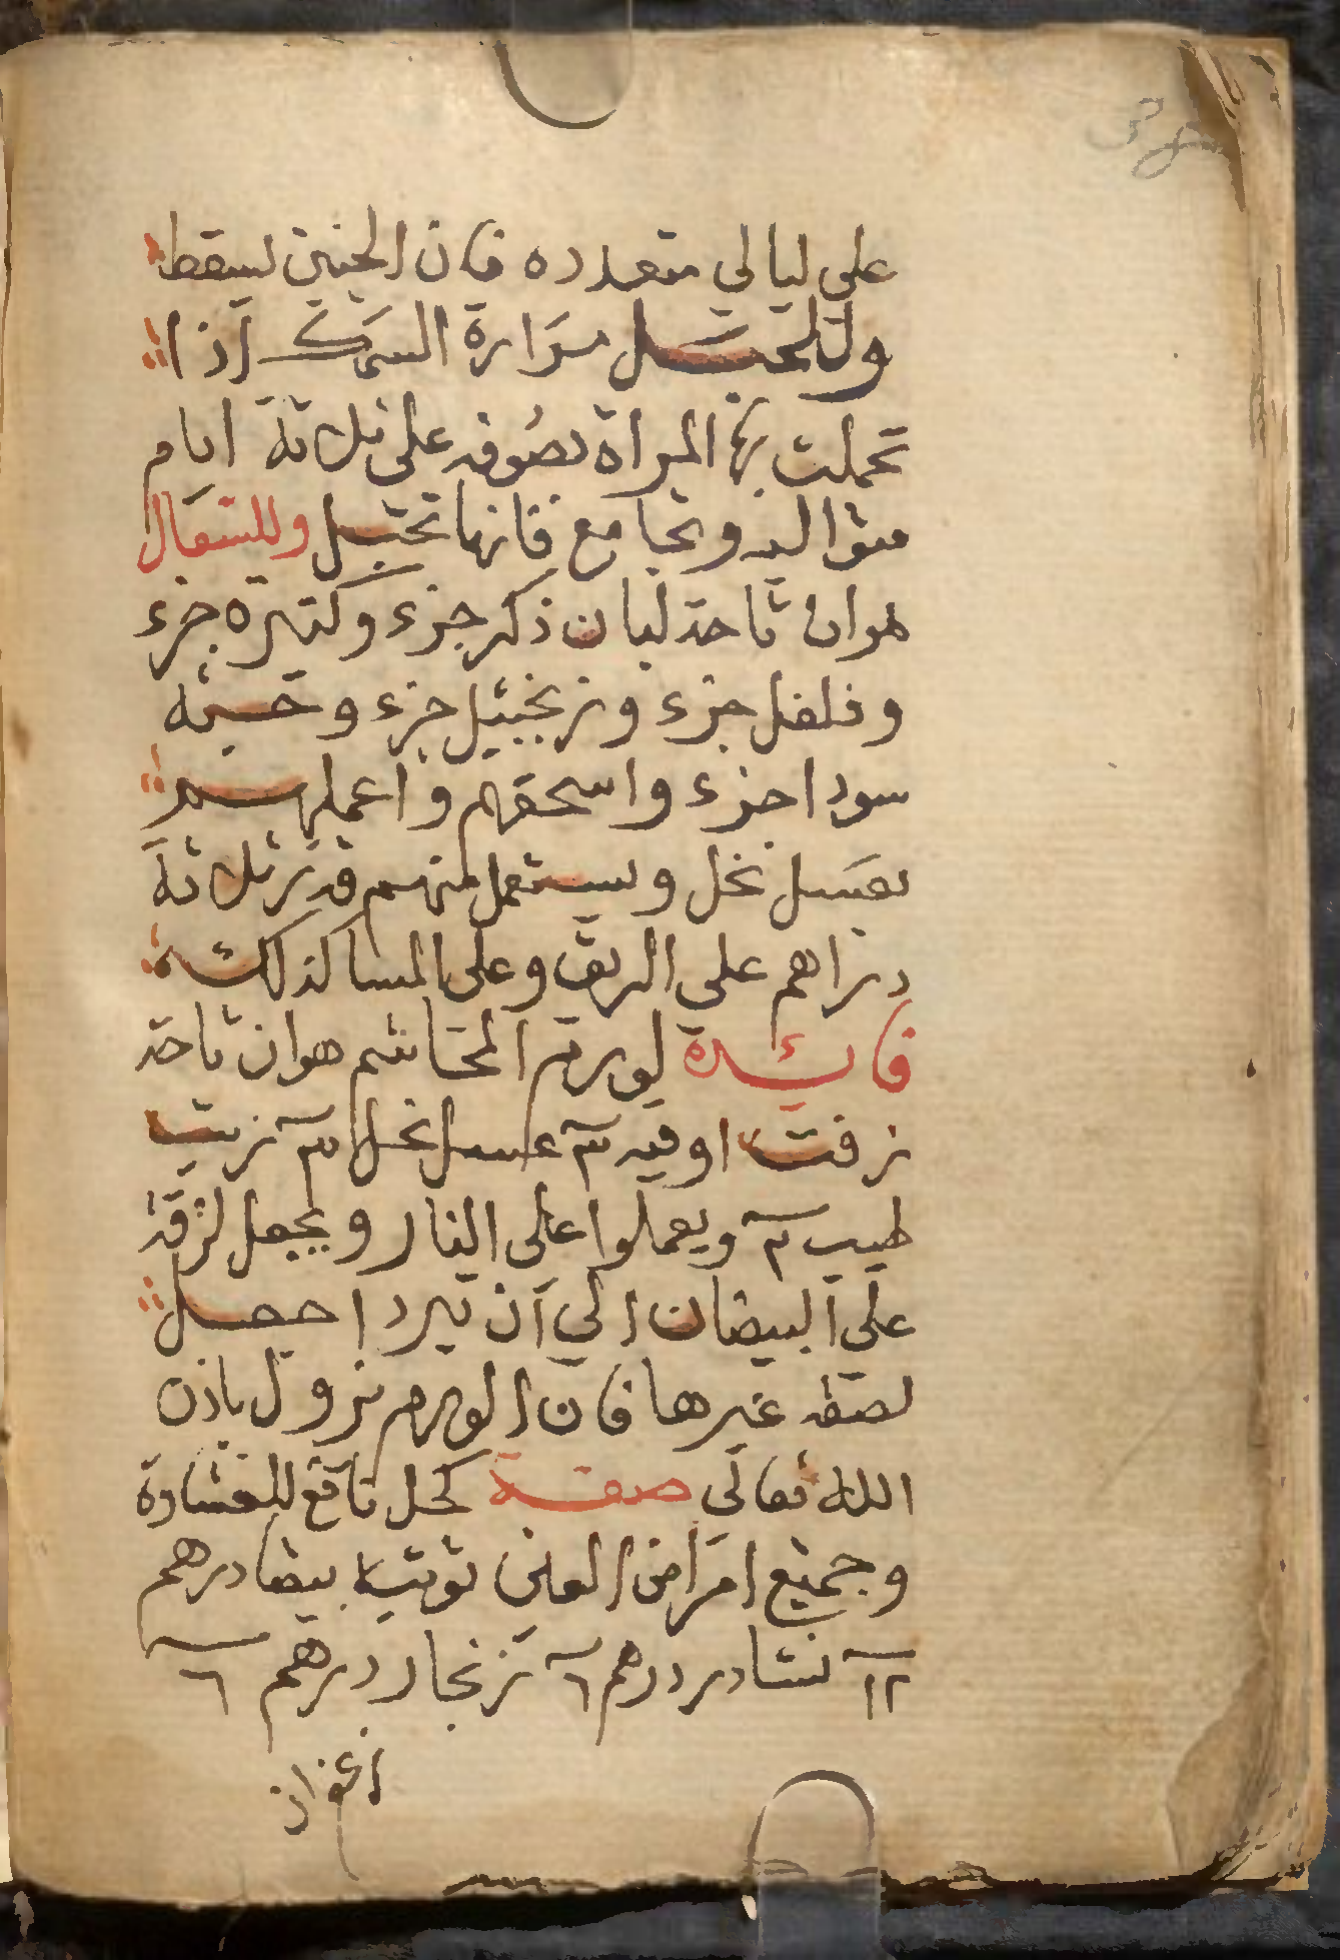 على ليالي متعدده فان الجنين يسقط
وللحبل مرارة السمك اذا
تحملت بها المراة بصوفه على ثلاثة ايام
متواليه وتجامع فانها تحبل وللسعال
هو ان تاخد لبان ذكر جزء وكتيره جزء
وفلفل جزء وزنجبيل جزء وحبة
سودا جزء واسحقهم واعملهم
بعسل نحل ويستعمل منهم قدر ثلاثة
دراهم على الريق وعلى المسا كذلك
فائدة لورم المحاشم هو ان تاخد
زفت اوقيه ٣ عسل نحل ٣ زيت
طيب ٣ ويعملوا على النار ويجعل لزقه
على البيضان الي ان يبرد اجعل
لصقه غيرها فان الورم يزول باذن
الله تعالى صفة كحل نافع للغشاوة
وجميع امراض العين توتيا بيضا درهم
١٢ نشادر درهم ٦ زنجار درهم ٦